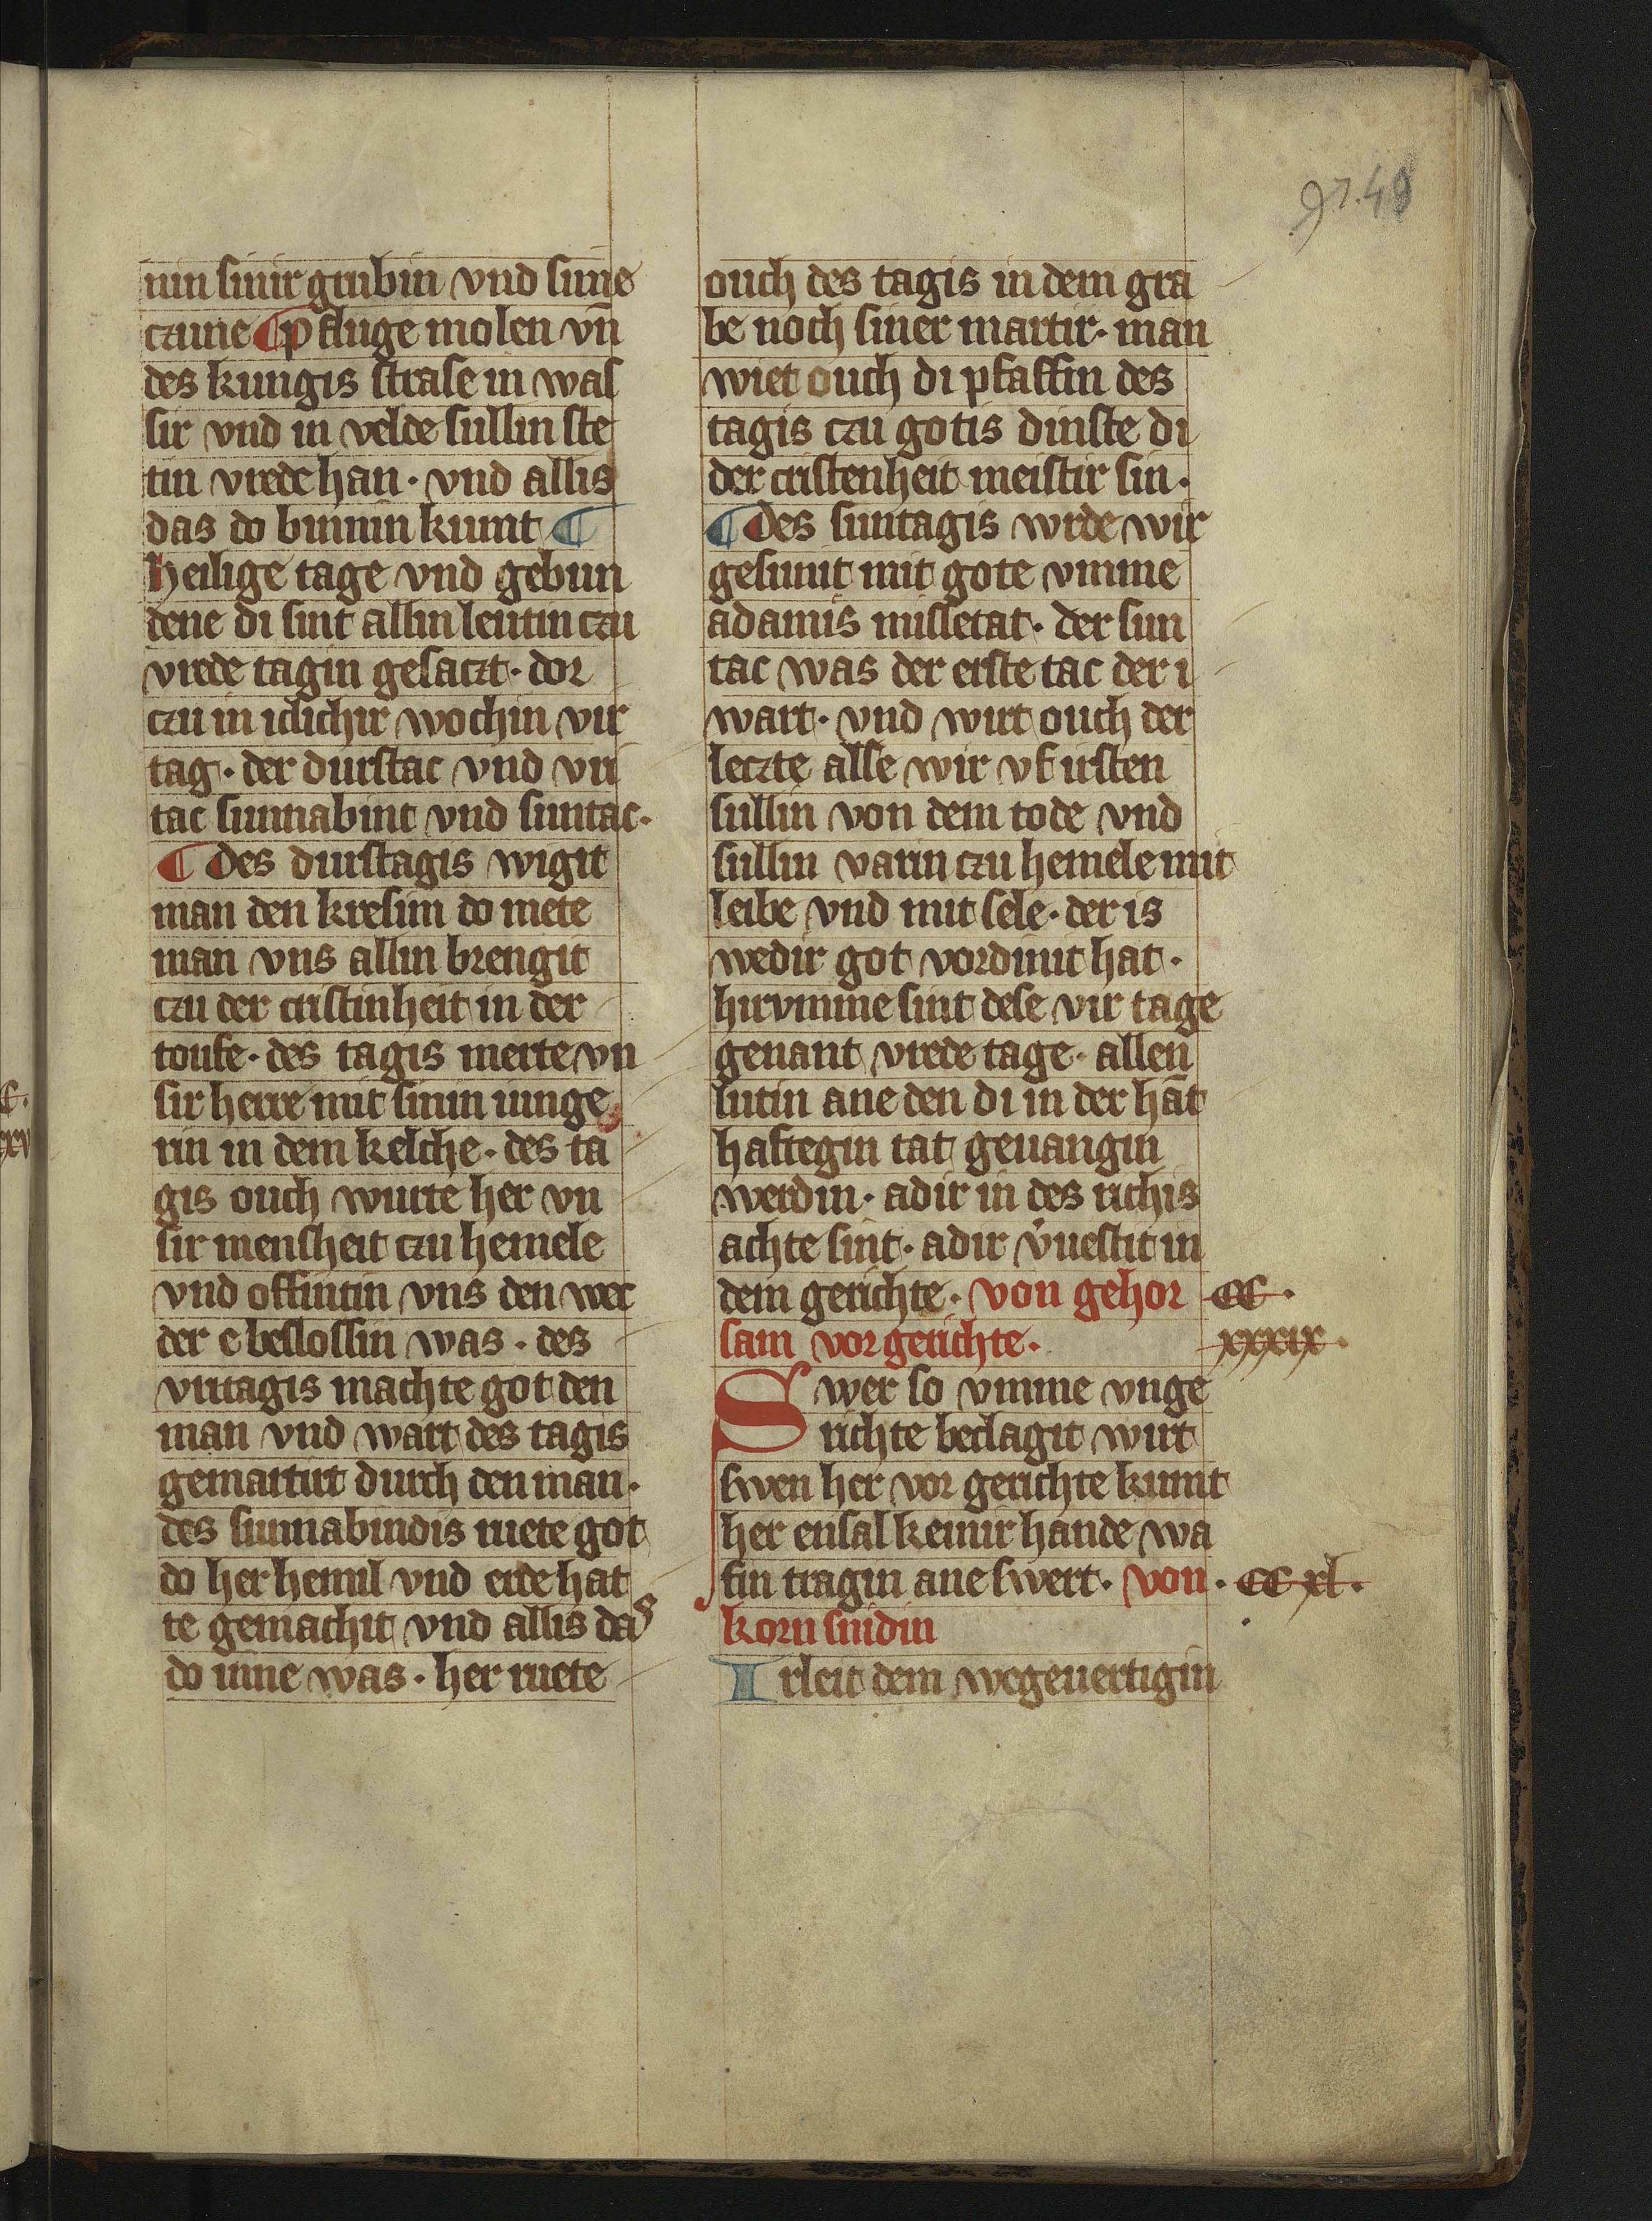 97.49
nin sinir grubin vnd sine
czune ¶ pfluge molen vn̄
des kungis strase in was
sir vnd in velde sullin ste
tin vrede han · vnd allis
das do binnin kumt ¶
heilige tage vnd gebun
dene di sint allin leutin czu
vrede tagin gesaczt · dor
czu in iclichir wochin vir
tag · der durstac vnd vri
tac sunnabint vnd suntac ·
¶ des durstagis wigit
man den kresim do mete
man vns allin brengit
czu der cristinheit in der
toufe · des tagis merte vn
sir herre mit sinin iunge
rin in dem kelche · des ta
gis ouch wurte her vn
sir mensheit czu hemele
vnd offintin vns den wec
der e beslossin was · des
vritagis machte got den
man vnd wart des tagis
gemartirt durch den man ·
des sunnabindis ruete got
do her hemil vnd erde hat
te gemachit vnd allis das
do inne was · her ruete
ouch des tagis in dem gra
be noch siner martir · man
wiet ouch di pfaffin des
tagis czu gotis dinste di
der cristenheit meistir sin ·
¶ des suntagis wrde wir
gesunit mit gote vmme
adamis missetat · der sun
tac was der erste tac der i
wart · vnd wirt ouch der
leczte alse wir vf irsten
sullin von dem tode vnd
sullin varin czu hemele mit
leibe vnd mit sele · der is
wedir got vordinit hat ·
hirvmme sint dese vir tage
genant vrede tage · allen
lutin ane den di in der hāt
haftegin tat geuangin
werdin · adir in des richis
achte sint · adir v̓uestit in
dem gerichte · von gehor
sam vor gerichte ·
CC ·
xxxix ·
Swer so vmme vnge
richte beclagit wirt
swen her vor gerichte kumt
her ensal keinir hande wa
fin tragin ane swert · von
· CC xl ·
korn snidin
Irleit dem wegeuertigin